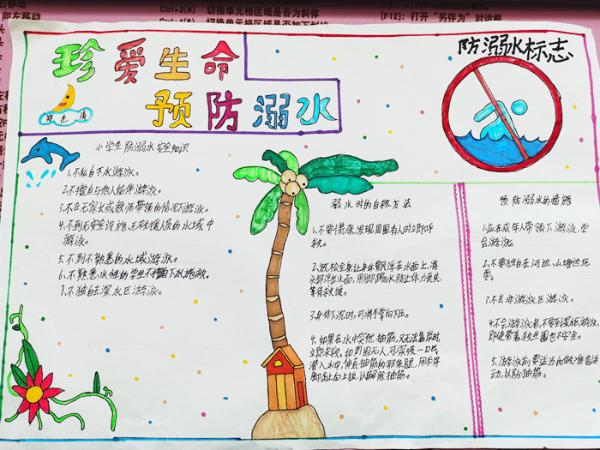 珍爱生命
预防溺水
防溺水标志
小学生防溺水安全知识
1.不私自下水游泳。
2.不擅自与他人结伴游泳。
3.不在无家长或教师带领的情况下游泳。
4.不到无安全设施、无救援人员的水域中
游泳。
5.不到不熟悉的水域游泳。
6.不熟悉水性的学生不擅自下水施救。
7.不独自去深水区游泳。
溺水时的自救方法
1.不要慌张,发现周围有人时立即呼
救。
2.放松全身,让身体飘浮在水面上,将
头部浮出水面,用脚踢水,防止体力丧失,
等待救援。
3.身体下沉时,可将手掌向下压。
4.如果在水中突然抽筋,又无法靠岸时,
立即求救。如周围无人,可深吸一口气
潜入水中,伸直抽筋的那条腿,用手将
脚趾向上扳,以解除抽筋。
预防溺水的措施
1.应在成年人带领下游泳,学
会游泳。
2.不要独自在河边、山塘边玩
耍。
3.不去非游泳区游泳。
4.不会游泳者,不要到深水区游泳,
即使带着救生圈也不安全。
5.游泳前要适当的做准备活
动,以防抽筋。